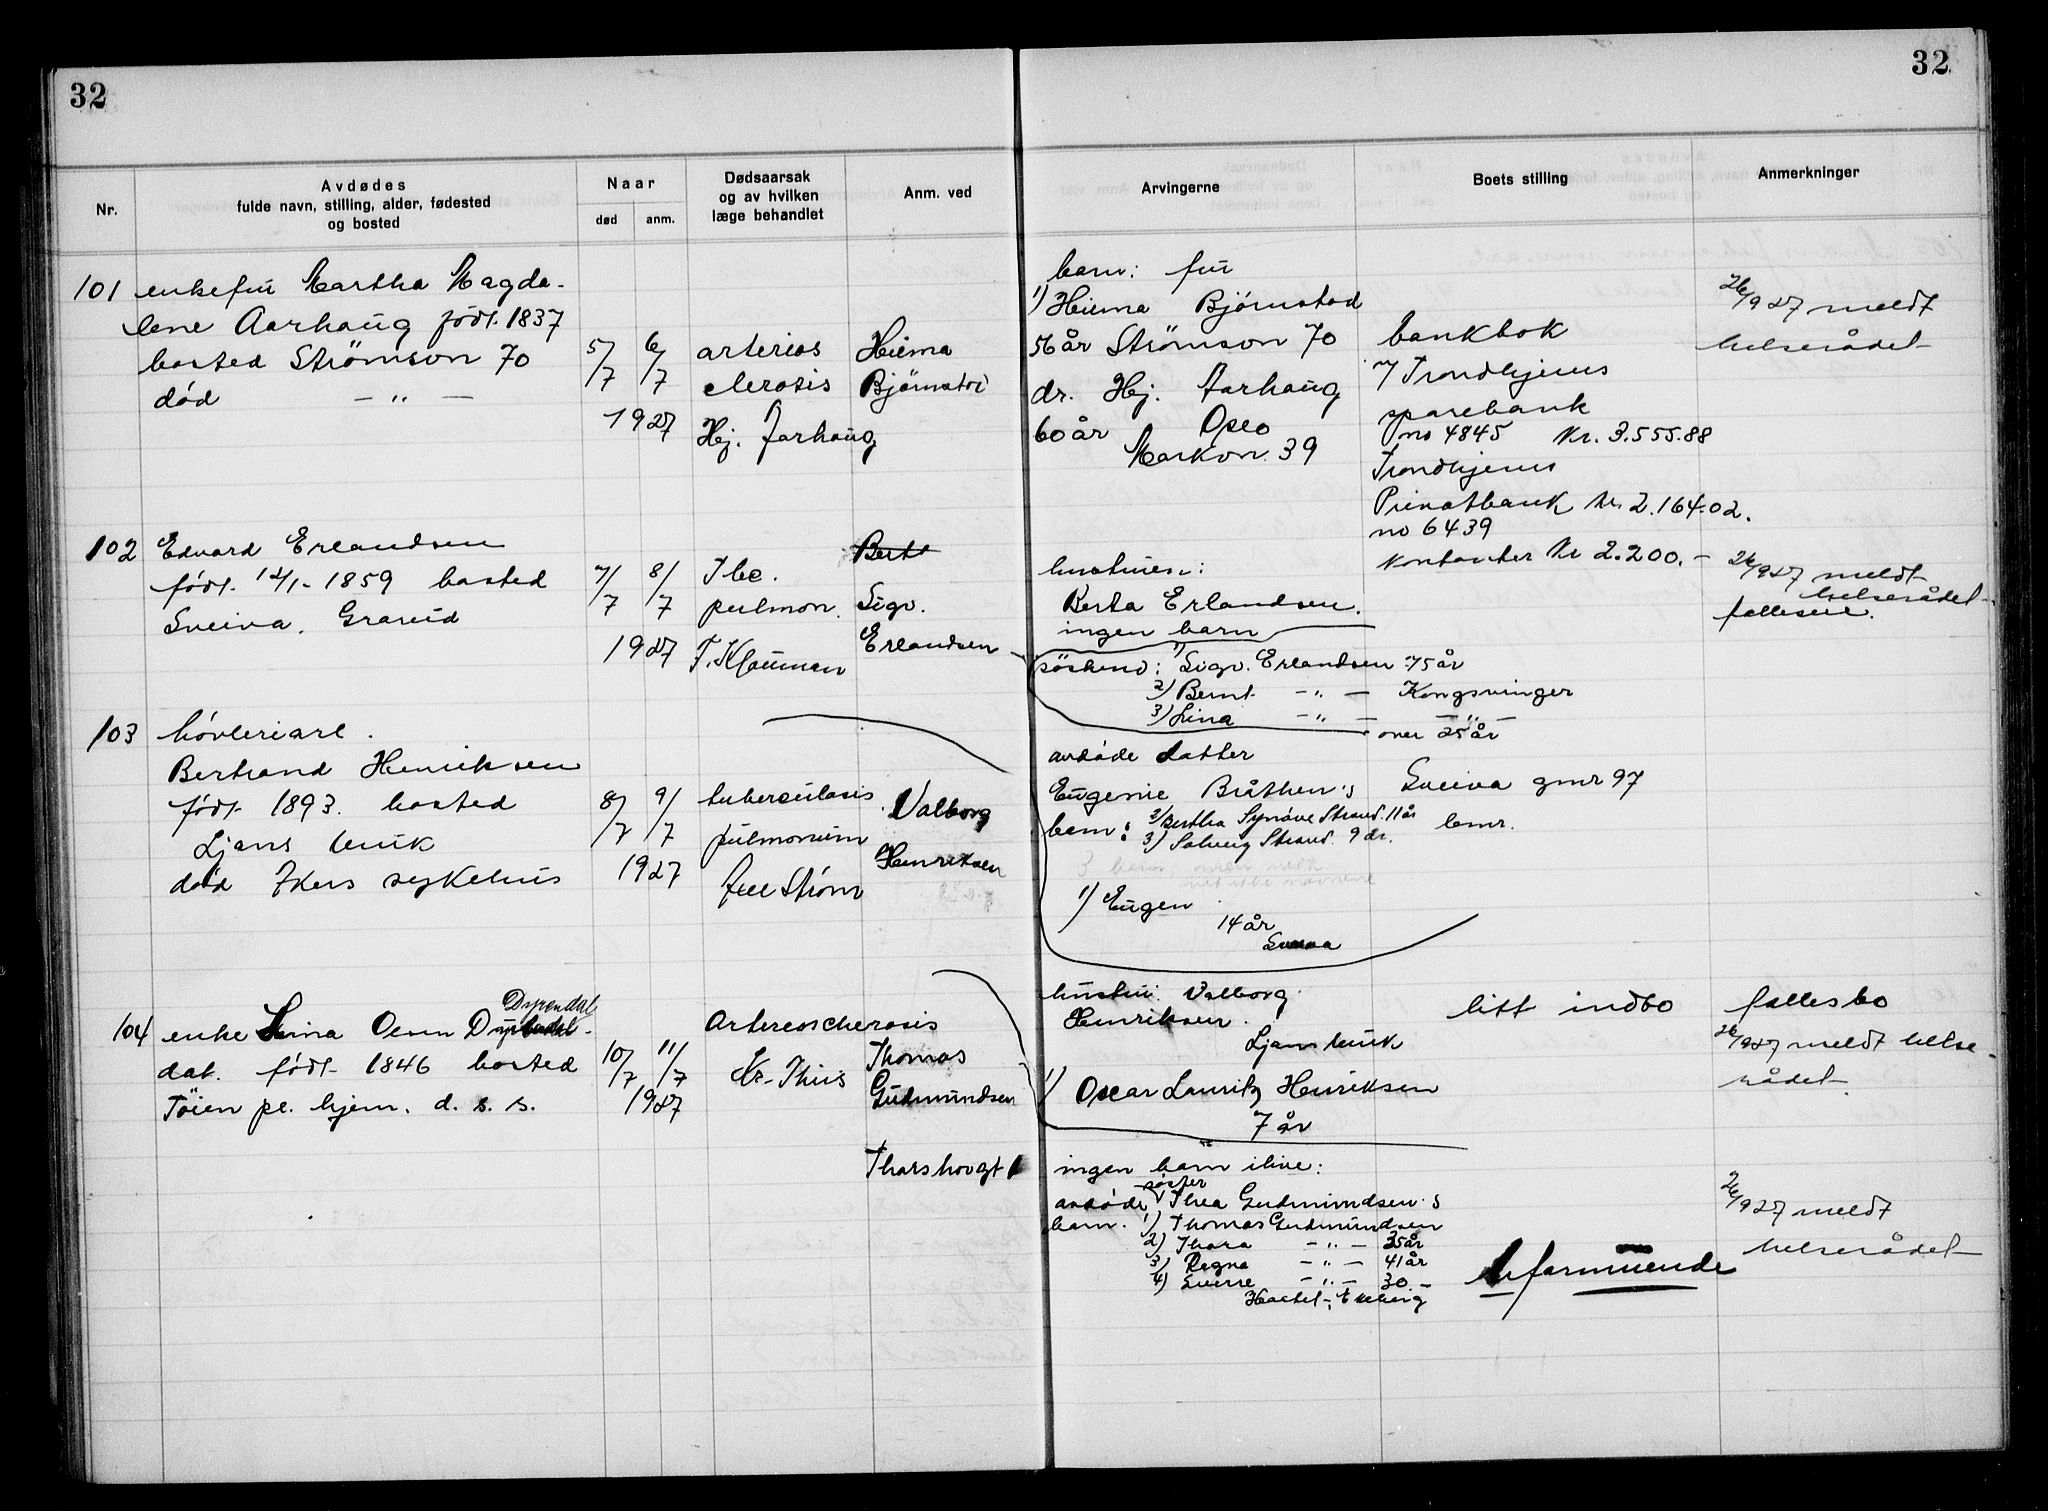 32
32
Nr.
Avdødes
fulde navn, stilling, alder, fødested
og bosted
Naar
død
anm.
Dødsaarsak
og av hvilken
læge behandlet
Anm. ved
Arvingerne
Boets stilling
Anmerkninger
101 enkefru Martha Magda-
lene Aarhaug født. 1837
bosted Strømsvn 70
død — " —
5/7 6/7
1927
arterios
clerosis
Hj. Aarhaug
Helma
Bjørnstad
barn: fru
1) Helma Bjørnstad
56 år Strømsvn 70
dr. Hj. Aarhaug
60 år Oslo
Markvn. 39
bankbok
i Trondhjems
sparebank
no 4845 Kr. 3.555.88
Trondhjems
Privatbank kr. 2.164.02.
no 6439
kontanter Kr 2.200.-
26/9 27 meldt
helserådet
102 Edvard Erlandsen
født. 12/1- 1859 bosted
Sveiva, Grorud
7/7 8/7
1927
Tbc.
pulmon.
Bert
Sigv.
Erlandsen
hustruen:
Berta Erlandsen.
ingen barn
søskend: 1) Sigv. Erlandsen 75 år
2) Bernt — " — Kongsvinger
3) Lina — " — — " —
over 25 år
26/9 27 meldt
helserådet
fælleseie.
103 høvleriarb.
Bertrand Henriksen
født 1893. bosted
Ljans bruk
død Akers sykehus
8/7 9/7
1927
tuberculosis
pulmonum
Axel Strøm
Valborg
Henriksen
avdøde datter
Eugenie Bråthen's
barn: 2) Bertha Synøve Strand. 11 år
3) Solveig Strand. 9 år.
1) Eugen
14 år
Sveiva
Sveiva gnr 97
bnr.
hustru: Valborg
Henriksen.
Ljans bruk
1) Oscar Lauritz Henriksen
7 år
litt indbo
fællesbo
26/9 27 meldt helse-
rådet
104 enke Lina Olsen Dyrendal
dal. født 1846 bosted
Tøien pl. hjem. d. s. s.
10/7 11/7
1927
Arterioscherosis
Kr. Thiis
Thomas
Gudmundsen
Thorshovgt 1
ingen barn ilive:
avdøde søster Thea Gudmundsen's
barn. 1) Thomas Gudmundsen
2) Thora — " — 35 år
3) Ragna — " — 41 år
4) Sverre — " — 30 —
Ekeberg
Uformuende
26/9 27 meldt
helserådet